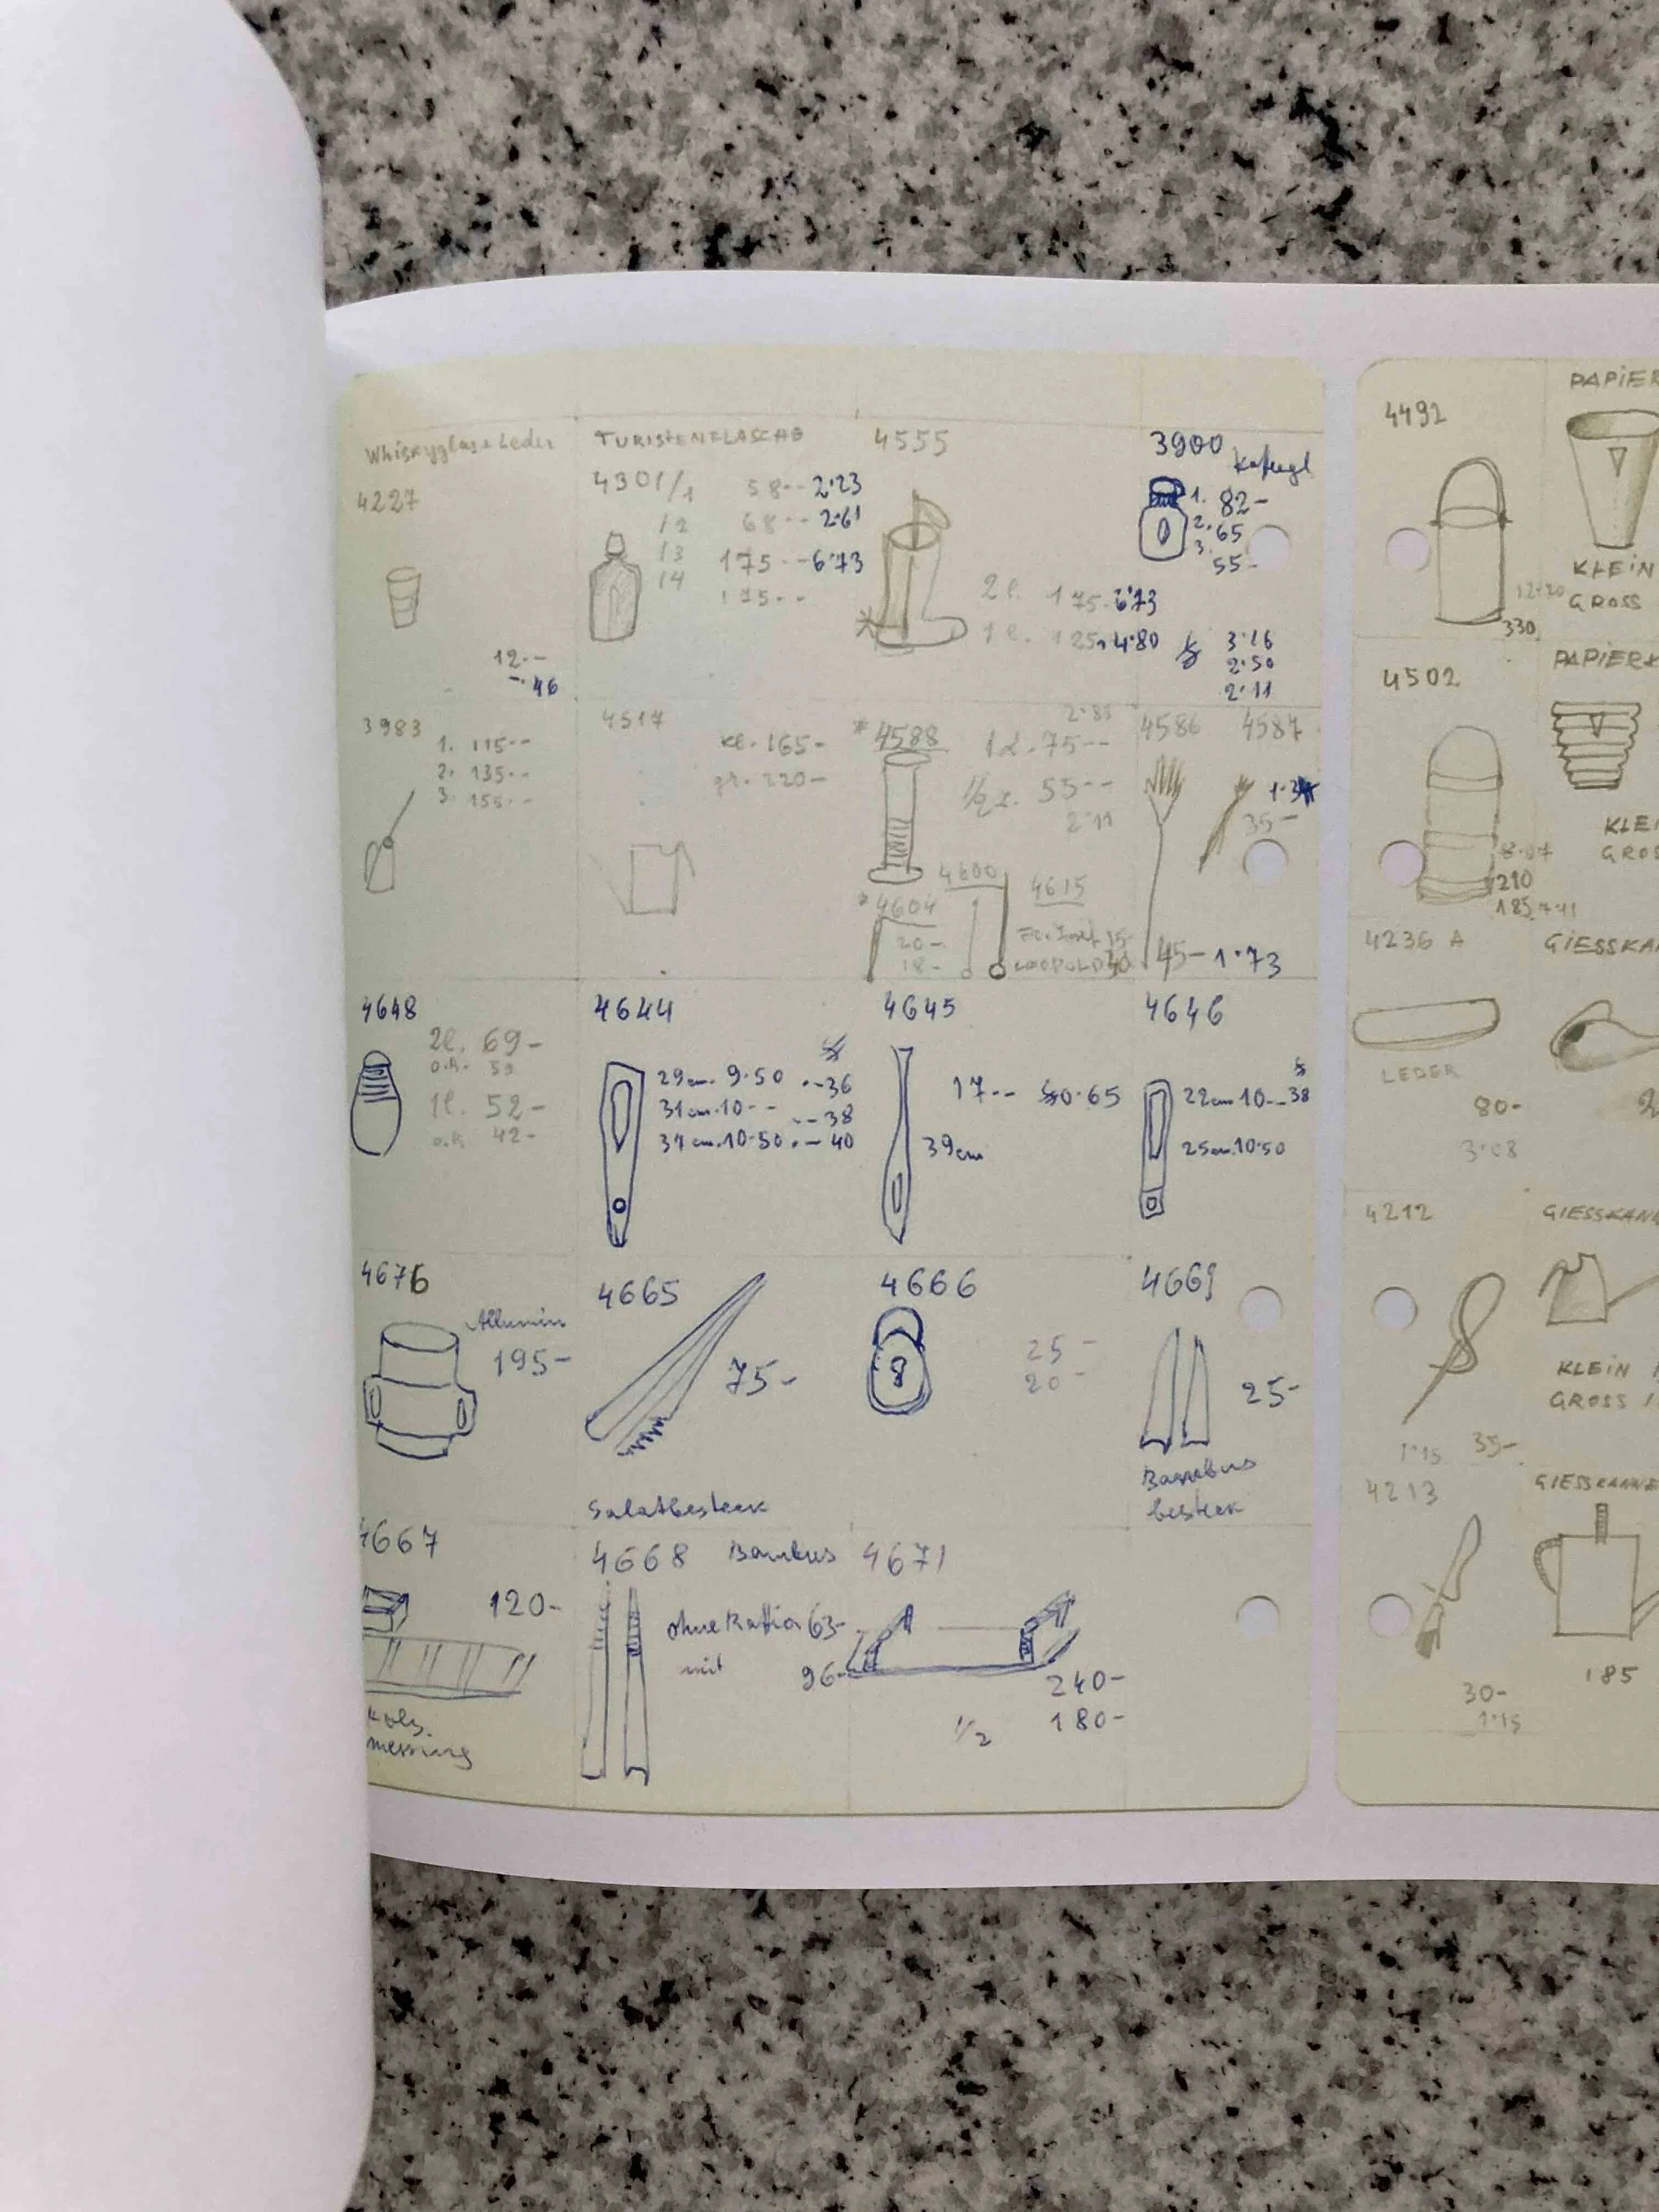 Whiskyglas + Leder
4227
12.--
-.46
TURISTENFLASCHE
4301/1 58-- 2·23
/2 68-- 2·61
/3 175-- 6·73
/4 175--
4555
2l. 175- 6·73
1l. 125- 4·80
3900
1. 82-
2. 65
3. 55-
$ 3·16
2·50
2·11
3983
1. 115--
2. 135--
3. 155--
4517
kl. 165-
gr. 220-
* 4588
2·88
1l. 75--
1/2 l. 55--
2·11
* 4604
20-
18-
4600
4615
15-
LEOPOLD
4586 4587
35-
45- 1·73
4648
2l. 69-
o.H. 53
1l. 52-
o.H. 42-
4644
29cm. 9·50 ·-36
31cm. 10-- ·-38
37cm. 10·50 ·-40
4645
17-- $0·65
39cm
4646
$
22cm 10-- 38
25cm. 10·50
4676
Allumin
195-
4665
75-
Salatbesteck
4666
8
25-
20-
4669
25-
Bambus
besteck
4667
120-
messing
4668 Bambus
ohne Raffia 63-
mit 96-
4671
240-
1/2 180-
4492
12·20
330
PAPIER
KLEIN
GROSS
4502
8·07
210
185 7·11
PAPIERK
KLEI
GROS
4236 A
LEDER
80-
3·08
GIESSKA
4212
1·15 35-
GIESSKANN
KLEIN
GROSS
4213
30-
1·15
GIESSKANNE
185